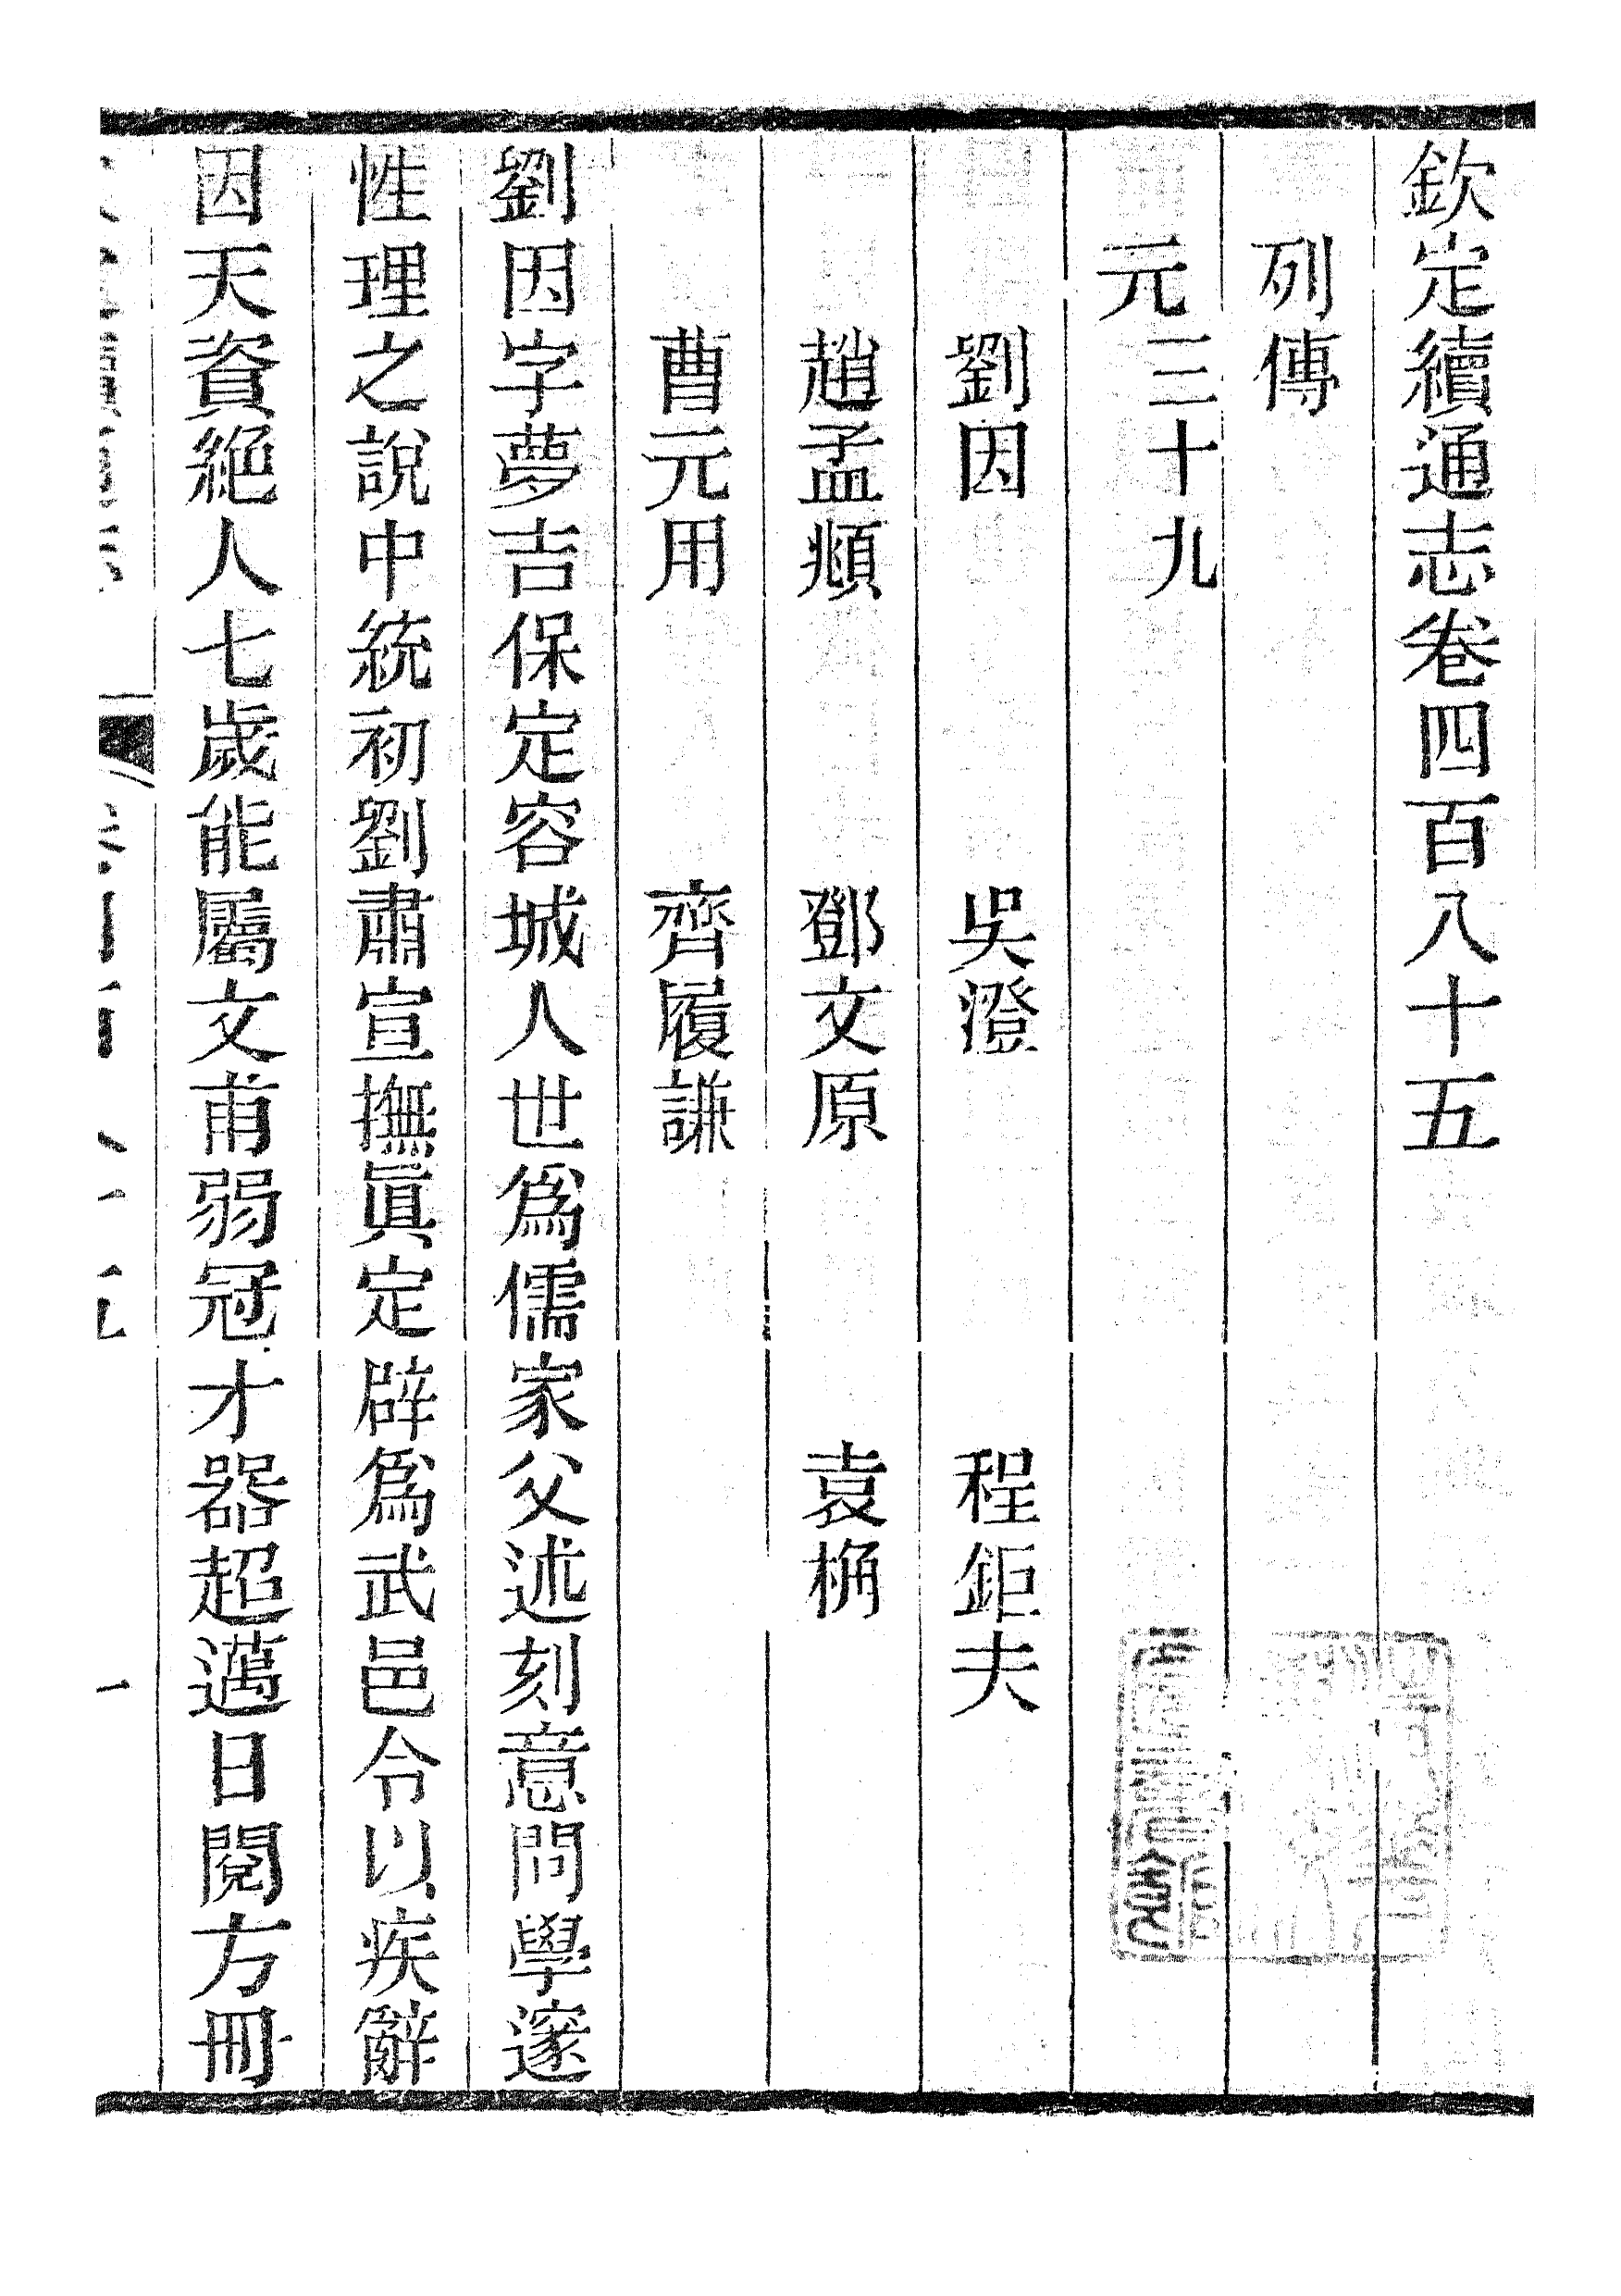 欽定續通志卷四百八十五
列傳
元三十九
劉因 吳澄 程鉅夫
趙孟頫 鄧文原 袁桷
曹元用 齊履謙
劉因字夢吉保定容城人世爲儒家父述刻意問學邃
性理之說中統初劉肅宣撫眞定辟爲武邑令以疾辭
因天資絕人七歲能屬文甫弱冠才器超邁日閱方冊